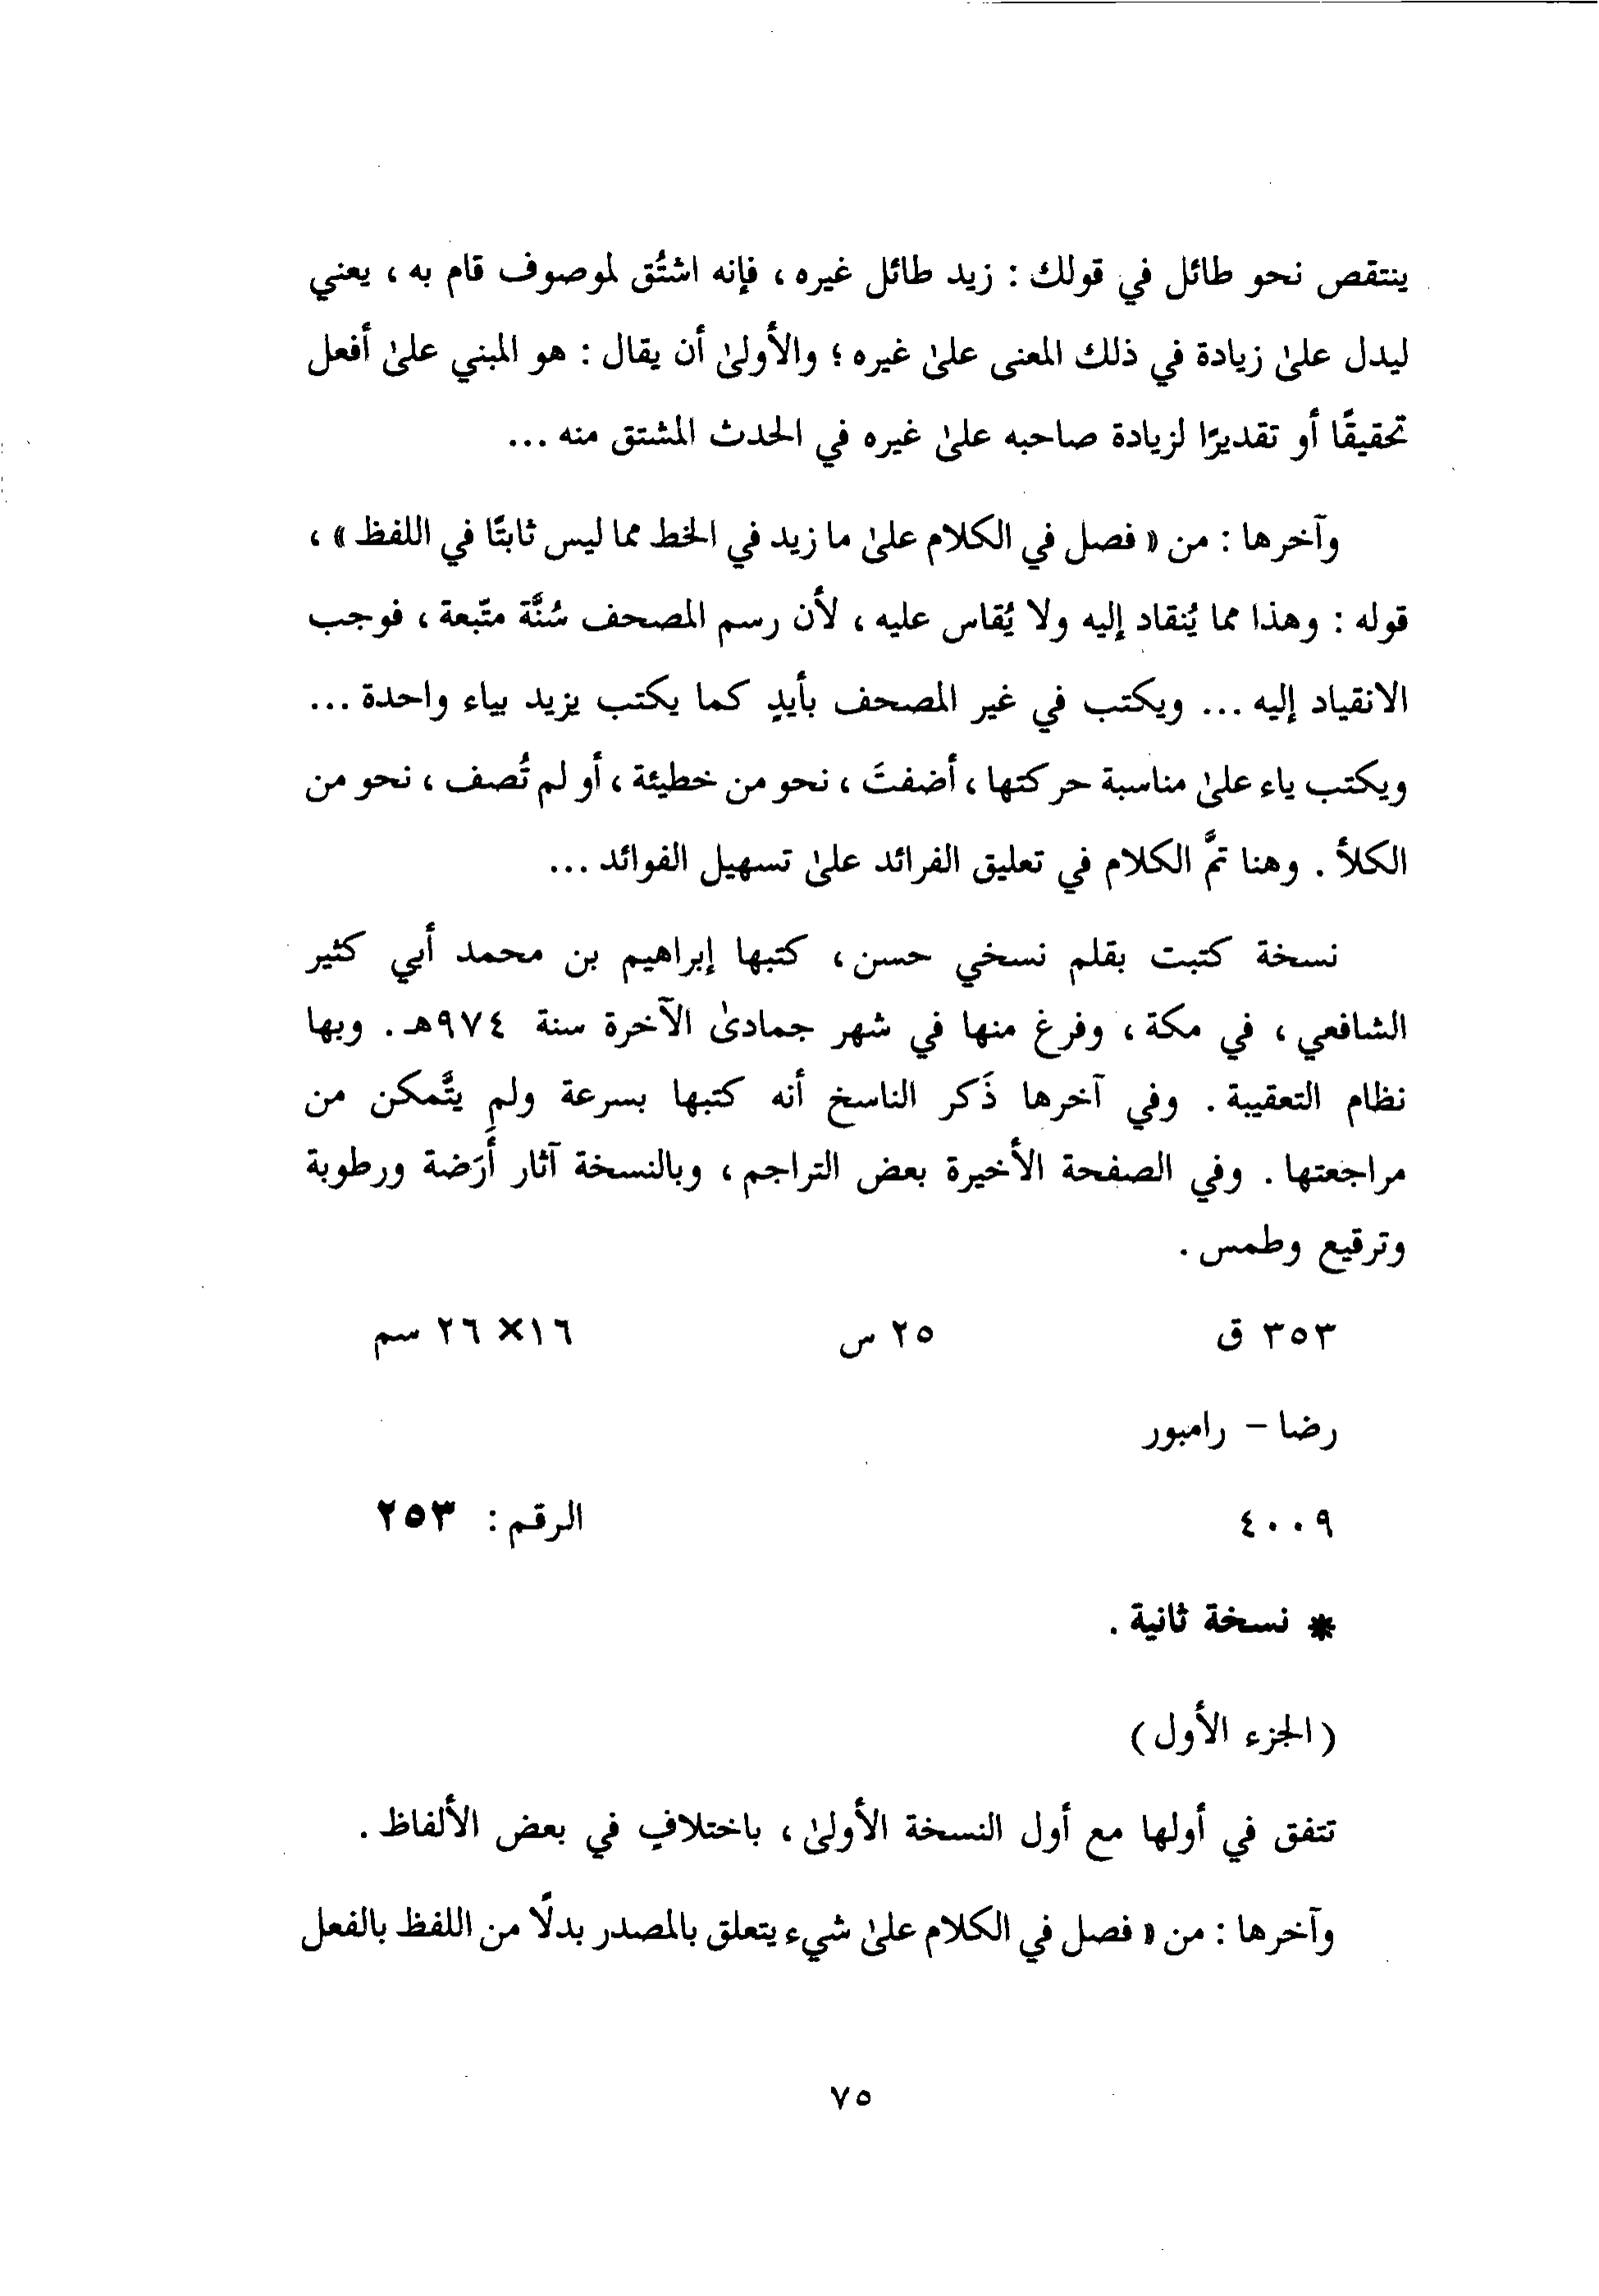 ينتقص نحو طائل في قولك : زيد طائل غيره ، فإنه اشتُق لموصوف قام به ، يعني
ليدل علىٰ زيادة في ذلك المعنى علىٰ غيره ؛ والأولىٰ أن يقال : هو المبني علىٰ أفعل
تحقيقًا أو تقديرًا لزيادة صاحبه علىٰ غيره في الحدث المشتق منه ...
وآخرها : من « فصل في الكلام علىٰ ما زيد في الخط مما ليس ثابتًا في اللفظ » ،
قوله : وهذا مما يُنقاد إليه ولا يُقاس عليه ، لأن رسم المصحف سُنَّة متّبعة ، فوجب
الانقياد إليه ... ويكتب في غير المصحف بأيدٍ كما يكتب يزيد بياء واحدة ...
ويكتب ياء علىٰ مناسبة حركتها ، أضفتَ ، نحو من خطيئة ، أو لم تُصف ، نحو من
الكلأ . وهنا تمَّ الكلام في تعليق الفرائد علىٰ تسهيل الفوائد ...
نسخة كتبت بقلم نسخي حسن ، كتبها إبراهيم بن محمد أبي كثير
الشافعي ، في مكة ، وفرغ منها في شهر جمادىٰ الآخرة سنة ٩٧٤هـ . وبها
نظام التعقيبة . وفي آخرها ذَكر الناسخ أنه كتبها بسرعة ولم يتَّمكن من
مراجعتها . وفي الصفحة الأخيرة بعض التراجم ، وبالنسخة آثار أَرَضة ورطوبة
وترقيع وطمس .
٣٥٣ ق ٢٥ س ١٦× ٢٦ سم
رضا - رامبور
٤٠٠٩ الرقم : ٢٥٣
* نسخة ثانية .
(الجزء الأول)
تتفق في أولها مع أول النسخة الأولىٰ ، باختلافٍ في بعض الألفاظ .
وآخرها : من « فصل في الكلام علىٰ شيء يتعلق بالمصدر بدلًا من اللفظ بالفعل
٧٥